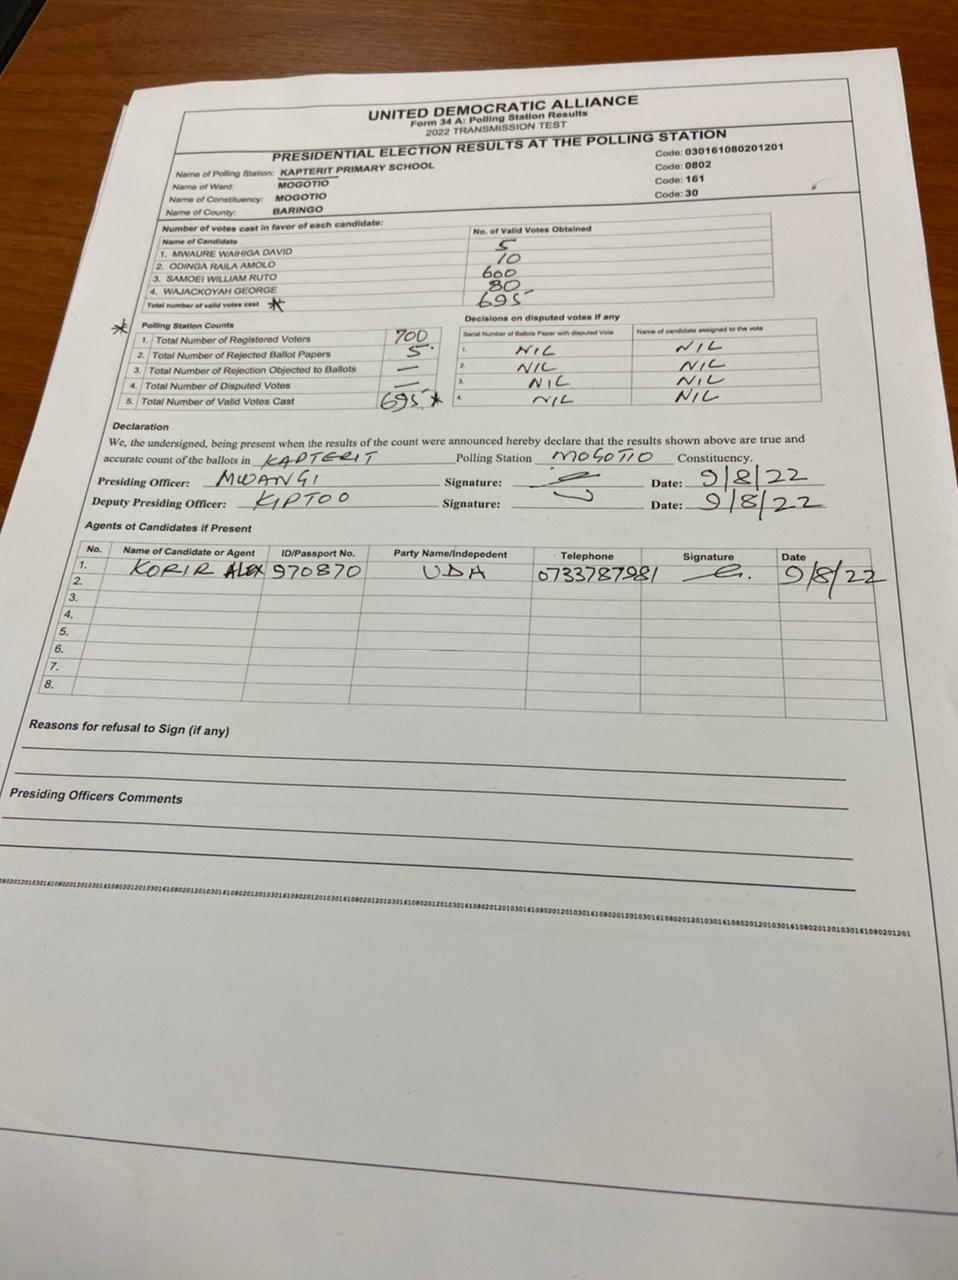 UNITED DEMOCRATIC ALLIANCE
Form 34 A: Polling Station Results
2022 TRANSMISSION TEST
PRESIDENTIAL ELECTION RESULTS AT THE POLLING STATION
Name of Polling Station: KAPTERIT PRIMARY SCHOOL Code: 030161080201201
Name of Ward: MOGOTIO Code: 0802
Name of Constituency: MOGOTIO Code: 161
Name of County: BARINGO Code: 30
Number of votes cast in favor of each candidate:
Name of Candidate No. of Valid Votes Obtained
1. MWAURE WAIHIGA DAVID 5
2. ODINGA RAILA AMOLO 10
3. SAMOEI WILLIAM RUTO 600
4. WAJACKOYAH GEORGE 80
Total number of valid votes cast * 695
* Polling Station Counts
1. Total Number of Registered Voters 700
2. Total Number of Rejected Ballot Papers 5
3. Total Number of Rejection Objected to Ballots —
4. Total Number of Disputed Votes —
5. Total Number of Valid Votes Cast 695 *
Decisions on disputed votes if any
Serial Number of Ballots Paper with disputed Vote Name of candidate assigned to the vote
1. NIL NIL
2. NIL NIL
3. NIL NIL
4. NIL NIL
Declaration
We, the undersigned, being present when the results of the count were announced hereby declare that the results shown above are true and
accurate count of the ballots in KAPTERIT Polling Station MOGOTIO Constituency.
Presiding Officer: MWANGI Signature: Date: 9/8/22
Deputy Presiding Officer: KIPTOO Signature: Date: 9/8/22
Agents of Candidates if Present
No. Name of Candidate or Agent ID/Passport No. Party Name/Indepedent Telephone Signature Date
1. KORIR ALEX 970870 UDA 0733787981 9/8/22
2.
3.
4.
5.
6.
7.
8.
Reasons for refusal to Sign (if any)
Presiding Officers Comments